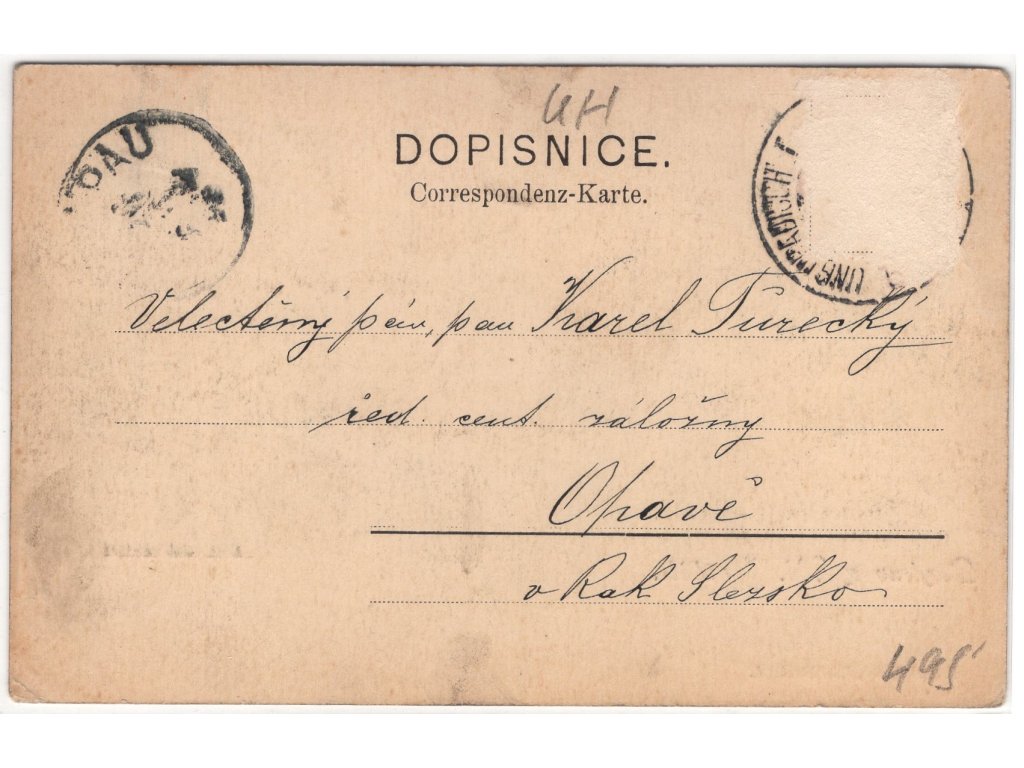 UH
DOPISNICE.
Correspondenz-Karte.
PAU
UNG. HRADISCH
Velectěný pán, pan Karel Turecký
řed. cent. záložny
Opavě
v Rak Slezsko
495